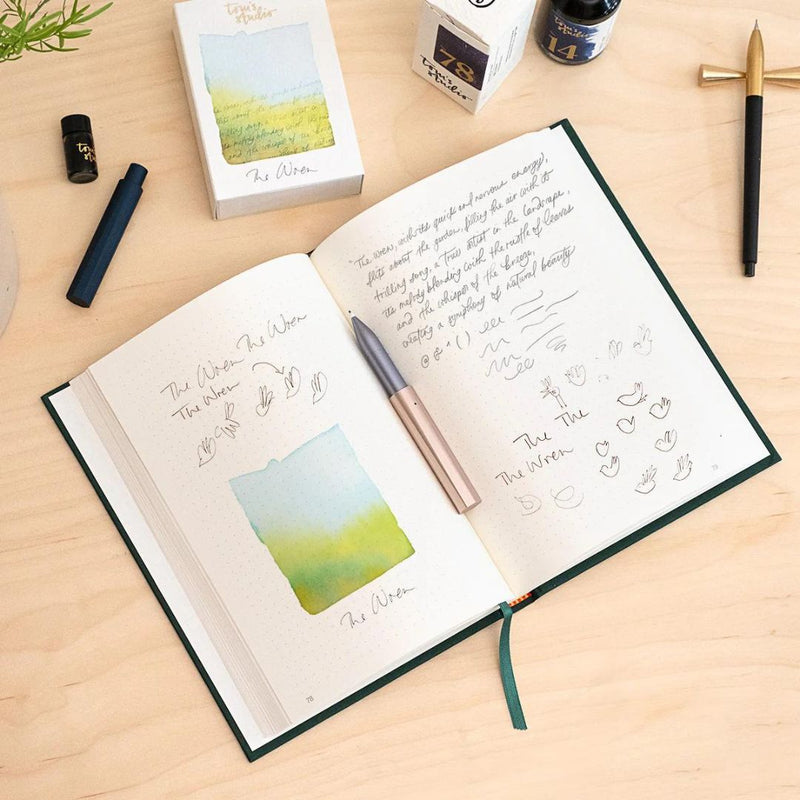 tom's
studio
The Wren
tom's
studio
78
tom's
studio
studio
14
The Wren The Wren
The Wren
The Wren
78
"The wren, with its quick and nervous energy,
flits about the garden, filling the air with its
trilling song, a true artist in the landscape,
its melody blending with the rustle of leaves
and the whisper of the breeze,
creating a symphony of natural beauty"
@ & ^ ( )
The The
The Wren
79